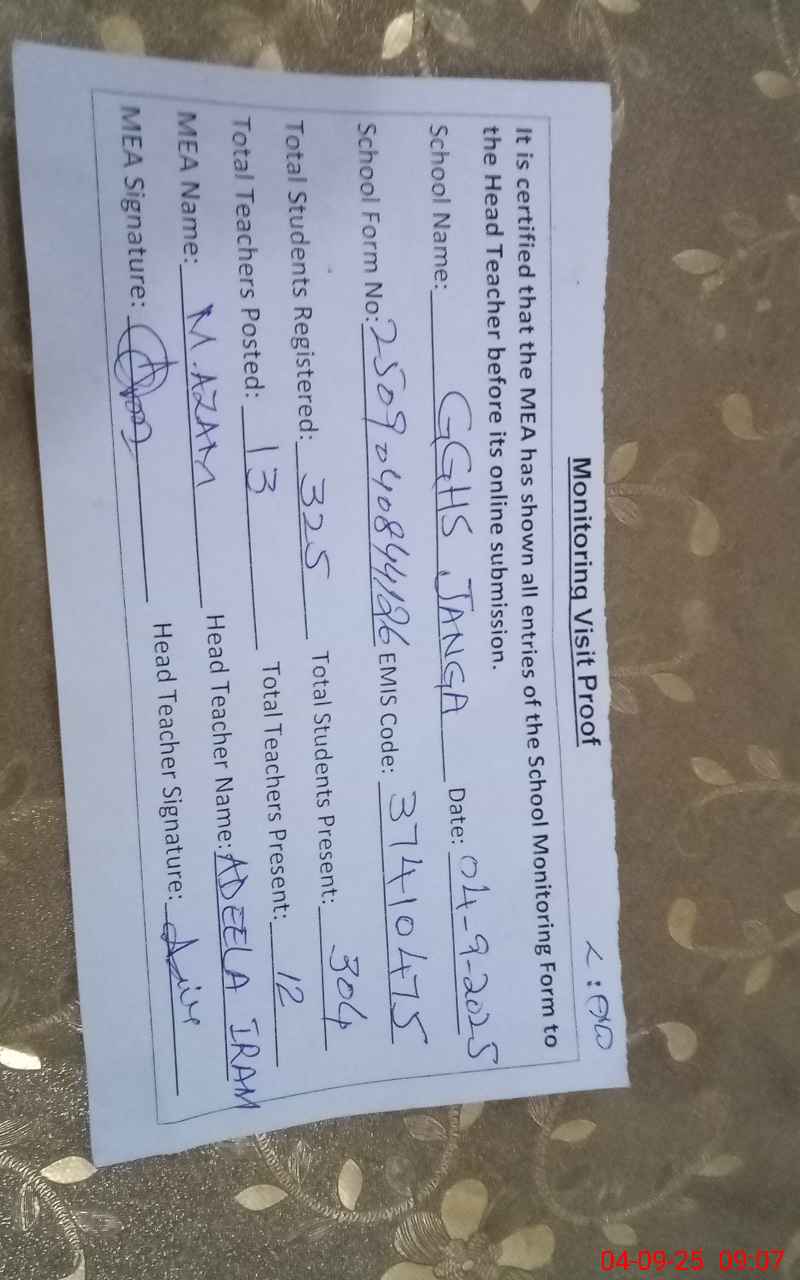 Monitoring Visit Proof
It is certified that the MEA has shown all entries of the School Monitoring Form to
the Head Teacher before its online submission.
School Name: GGHS JANGA Date: 04-9-2025
School Form No: 2509040844196 EMIS Code: 37410475
Total Students Registered: 325 Total Students Present: 304
Total Teachers Posted: 13 Total Teachers Present: 12
MEA Name: M.AZAM Head Teacher Name: ADEELA IRAM
MEA Signature: Head Teacher Signature:
04-09-25 09:07